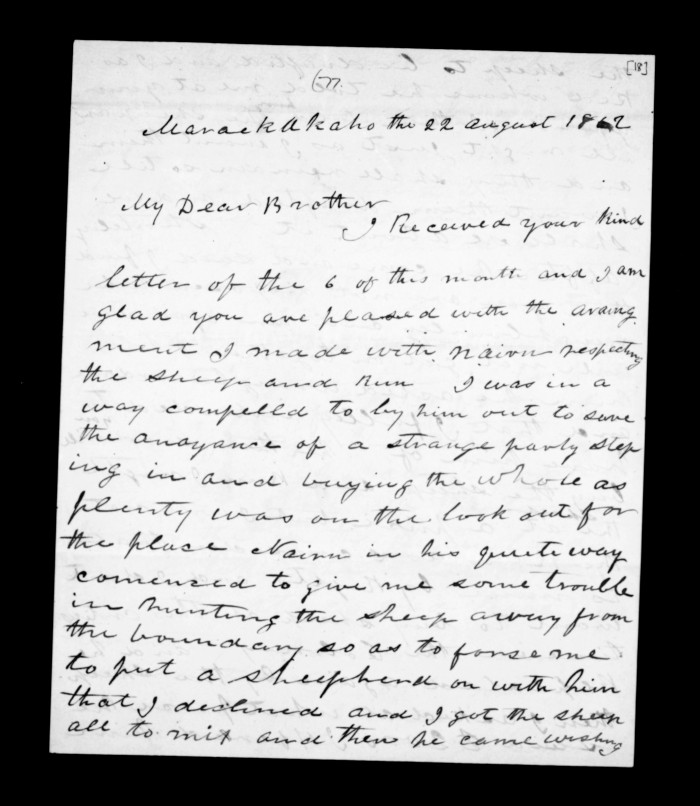 [18]
Maraekakaho the 22 august 1862
My Dear Brother
I Received your kind
letter of the 6 of this month and I am
glad you are pleased with the araing
ment I made with Nairn respecting
the sheep and Run I was in a
way compelld to by him out to save
the anoyance of a strange party step
ing in and buying the whole as
plenty was on the look out for
the place Nairn in his quiet way
comenced to give me some trouble
in hunting the sheep away from
the boundary so as to forse me
to put a sheepherd on with him
that I declined and I got the sheep
all to mix and then he came wishing